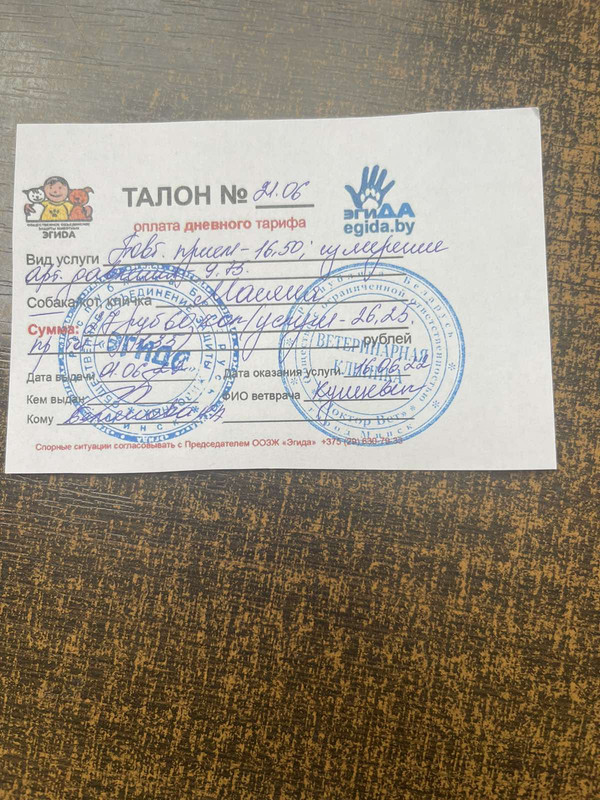 ТАЛОН № 21.06
оплата дневного тарифа
ОБЩЕСТВЕННОЕ ОБЪЕДИНЕНИЕ
ЗАЩИТЫ ЖИВОТНЫХ
ЭГИДА
ЭГИДА
egida.by
Вид услуги Повт. прием - 16.50; измерение
арт. давления 9.75.
Собака/кот, кличка Масяня
Сумма: 27 руб 60 коп/услуги - 26.25,
рублей
Дата выдачи 01.06.22 Дата оказания услуги 16.06.22
Кем выдан ФИО ветврача
Кому
Спорные ситуации согласовывать с Председателем ООЗЖ «Эгида» +375 (29) 630-79-33
ЭГИДА
ВЕТЕРИНАРНАЯ
КЛИНИКА
Доктор Вет